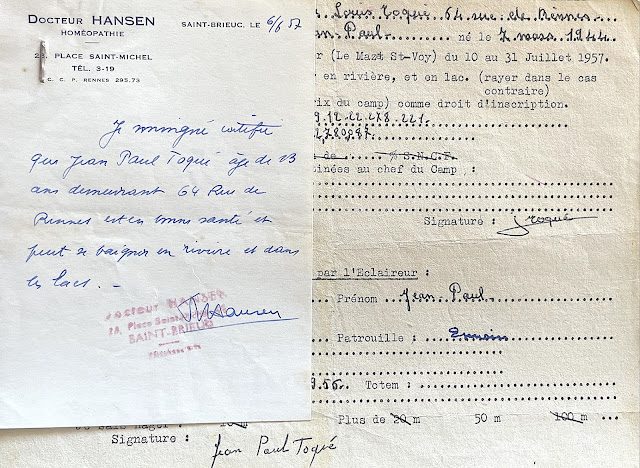 DOCTEUR HANSEN
HOMÉOPATHIE
SAINT-BRIEUC, LE 6/6 57
28, PLACE SAINT-MICHEL
TÉL. 3-19
C. C. P. RENNES 295.73
Je soussigné certifie
que Jean Paul Toqué age de 13
ans demeurant 64 Rue de
Rennes est en bonne santé et
peut se baigner en riviere et dans
les lacs. -
Docteur HANSEN
28, Place Saint-
SAINT-BRIEUC
Téléphone 3-19
Hansen
Louis Toqué 64 rue de Rennes
Paul né le 7 mars 1944
(Le Mazet St-Voy) du 10 au 31 Juillet 1957.
en rivière, et en lac. (rayer dans le cas
contraire)
prix du camp) comme droit d'inscription.
de S.N.C.F.
au chef du Camp :
Signature : JToqué
par l'Eclaireur :
Prénom Jean Paul
Patrouille :
Totem :
Plus de 20 m 50 m 100 m
Je sais nager :
Signature :
Jean Paul Toqué